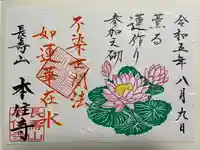 令和五年八月九日
薫る
蓮作り
参加之砌
不染世間法
如蓮華在水
長壽山
本住寺